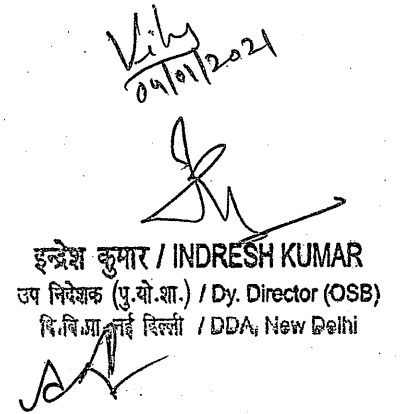 09/01/2021
इन्द्रेश कुमार / INDRESH KUMAR
उप निदेशक (पु.यो.शा.) / Dy. Director (OSB)
दि.वि.प्रा. नई दिल्ली / DDA, New Delhi